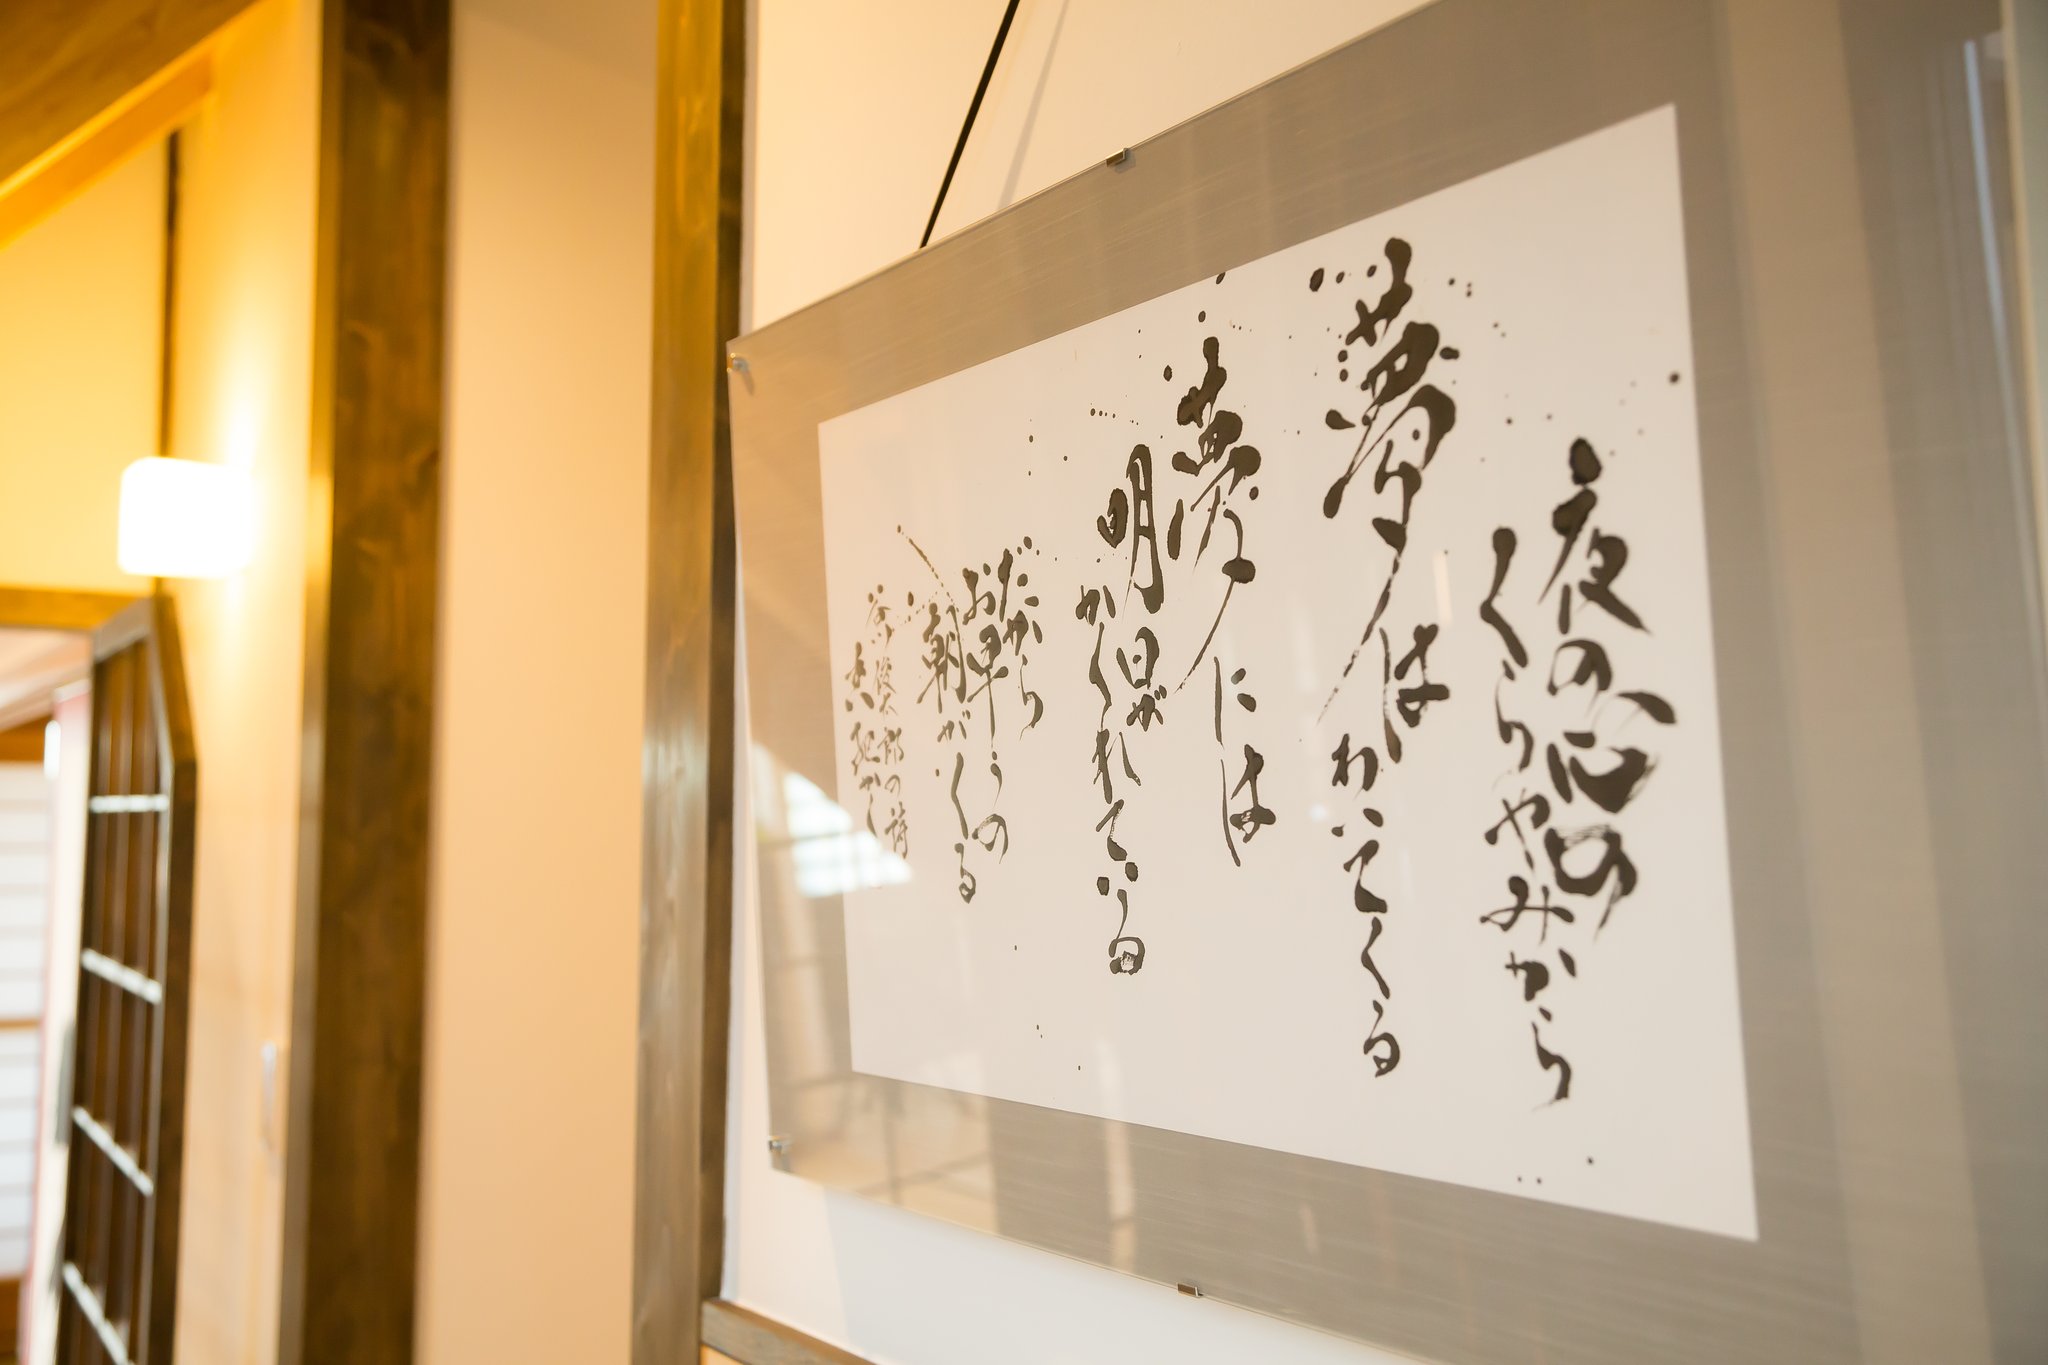 夜の心の
くらやみから
夢は
わいてくる
夢には
明日が
かくれている
だから
お早うの
朝がくる
谷川俊太郎の詩